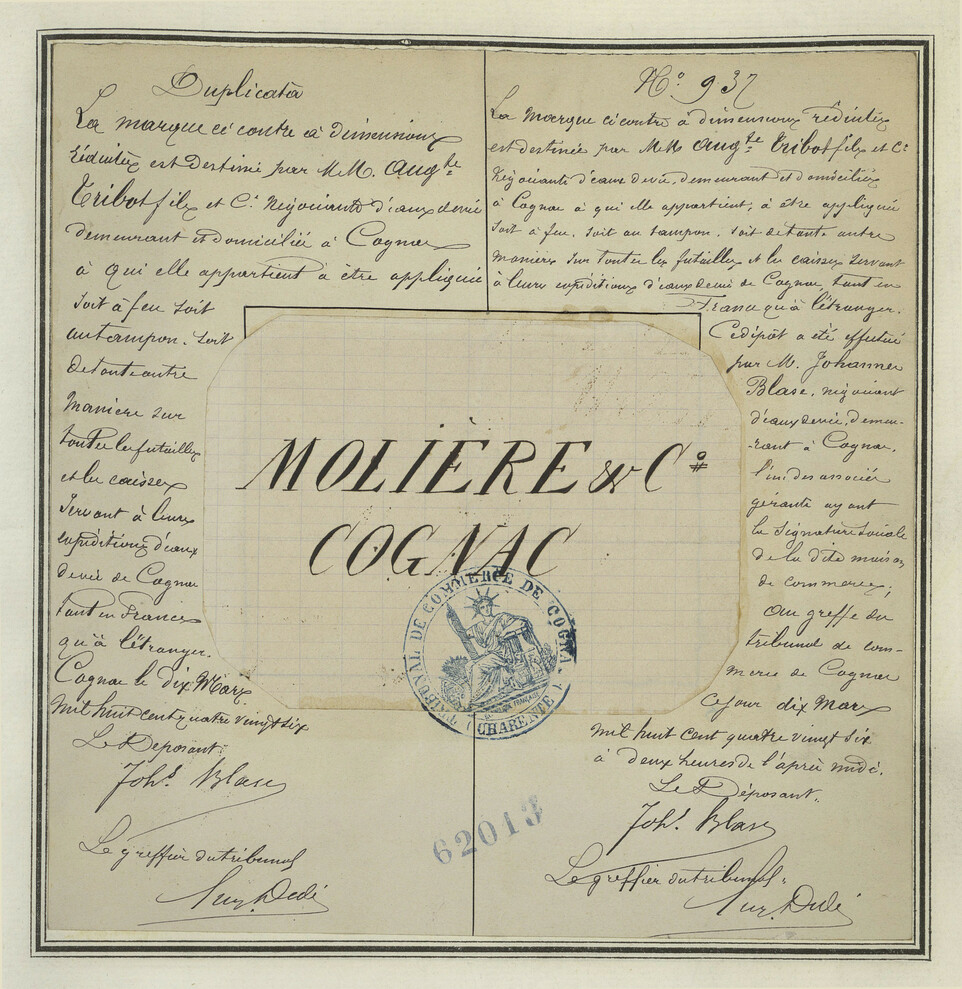 Duplicata
La marque ci contre à dimensions
réduites est destinée par M.M. Aug.te
Tribot fils et C.e Négociants d'eaux de vie
demeurant et domiciliés à Cognac
à qui elle appartient à être appliquée
soit à feu soit
au tampon. soit
de toute autre
manière sur
toutes les futailles
et les caisses
servant à leurs
expéditions d'eaux
de vie de Cognac
tant en France
qu'à l'étranger.
Cognac le dix Mars
mil huit cent quatre vingt six
Le Déposant:
Joh.s Blase
Le greffier du tribunal
N.o 937
La marque ci contre à dimensions réduites
est destinée par M.M. Aug.te Tribot fils et C.e
Négociants d'eaux de vie, demeurant et domiciliés
à Cognac à qui elle appartient, à être appliquée
soit à feu, soit au tampon, soit de toute autre
manière sur toutes les futailles et les caisses servant
à leurs expéditions d'eaux de vie de Cognac, tant en
France qu'à l'étranger.
Ce dépôt a été effectué
par M. Johannes
Blase, négociant
d'eaux de vie, demeu-
rant à Cognac,
l'un des associés
gérants ayant
la signature sociale
de la dite maison
de commerce;
Au greffe du
tribunal de com-
merce de Cognac
Ce jour dix Mars
mil huit cent quatre vingt six
à deux heures de l'après midi.
Le Déposant,
Joh.s Blase
Le greffier du tribunal:
MOLIÈRE & C.o
COGNAC
TRIBUNAL DE COMMERCE DE COGNAC
(CHARENTE)
62013